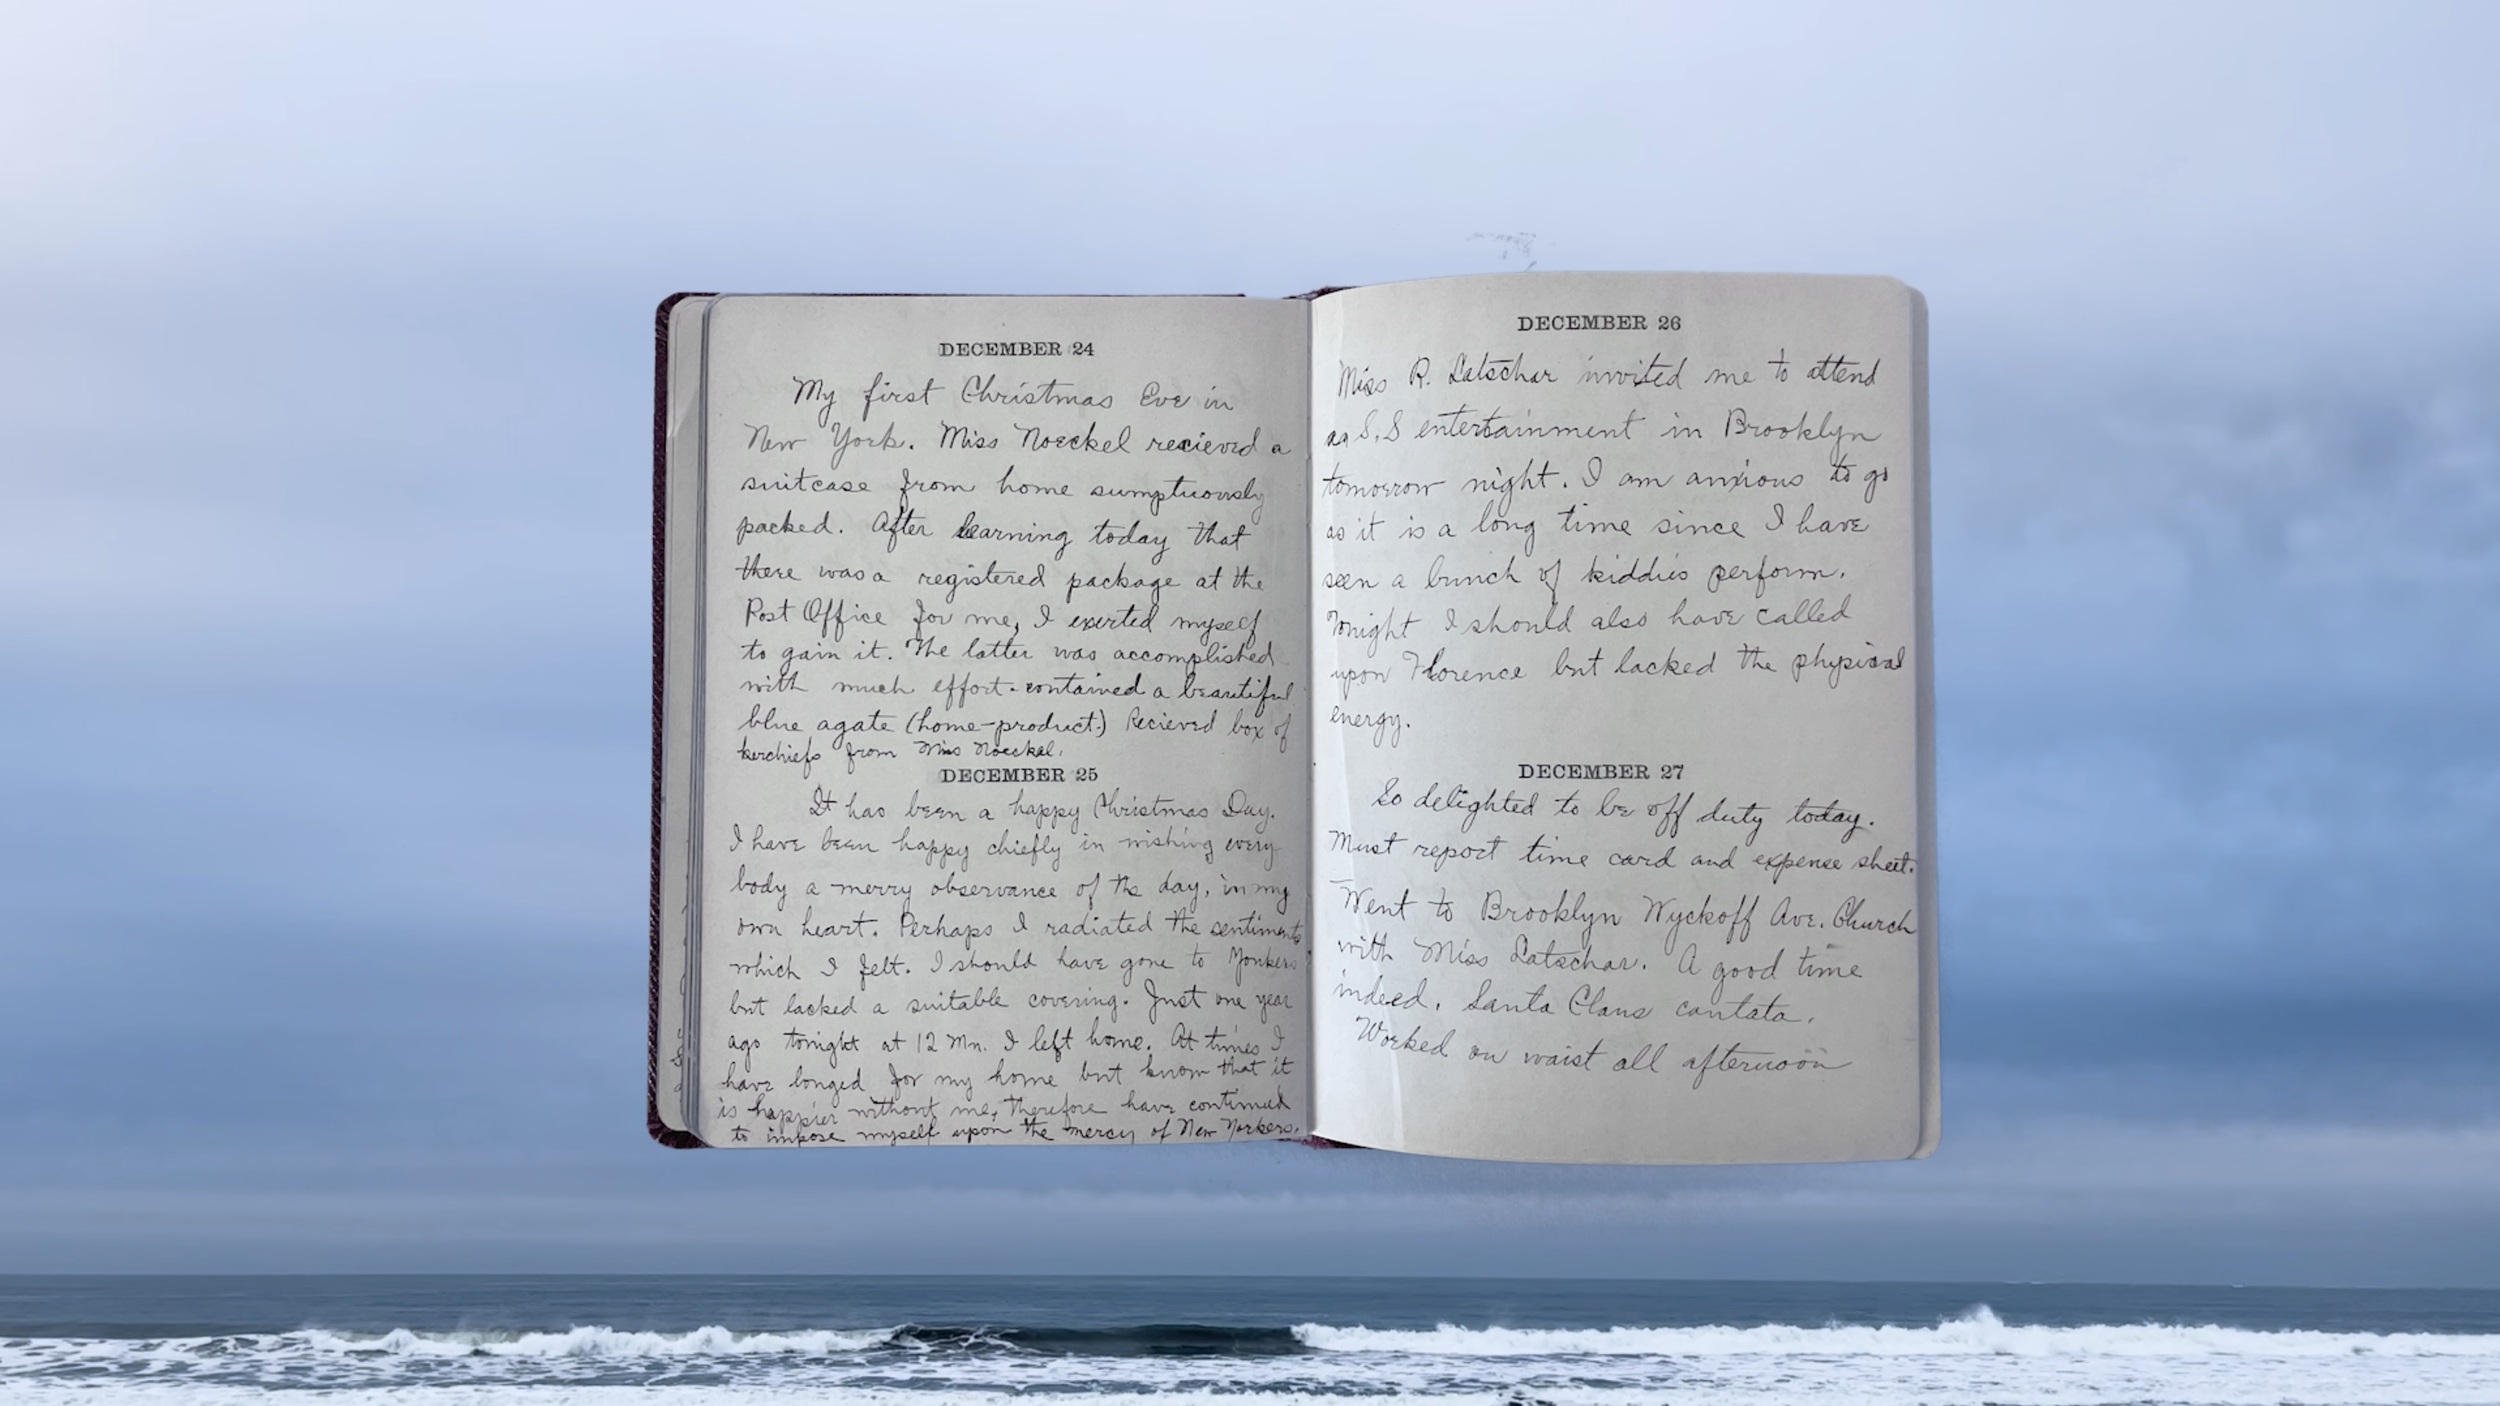 DECEMBER 24
My first Christmas Eve in
New York. Miss Noeckel recieved a
suitcase from home sumptuously
packed. After learning today that
there was a registered package at the
Post Office for me, I exerted myself
to gain it. The latter was accomplished
with much effort - contained a beautiful
blue agate (home-product.) Recieved box of
kerchiefs from Miss Noeckel.
DECEMBER 25
It has been a happy Christmas Day.
I have been happy chiefly in wishing every
body a merry observance of the day, in my
own heart. Perhaps I radiated the sentiments
which I felt. I should have gone to Yonkers
but lacked a suitable covering. Just one year
ago tonight at 12 Mn. I left home. At times I
have longed for my home but know that it
is happier without me, therefore have continued
to impose myself upon the mercy of New Yorkers.
DECEMBER 26
Miss R. Latschar invited me to attend
S.S entertainment in Brooklyn
tomorrow night. I am anxious to go
as it is a long time since I have
seen a bunch of kiddies perform.
Tonight I should also have called
upon Florence but lacked the physical
energy.
DECEMBER 27
So delighted to be off duty today.
Must report time card and expense sheet.
Went to Brooklyn Wyckoff Ave. Church
with Miss Latschar. A good time
indeed. Santa Claus cantata.
Worked on waist all afternoon